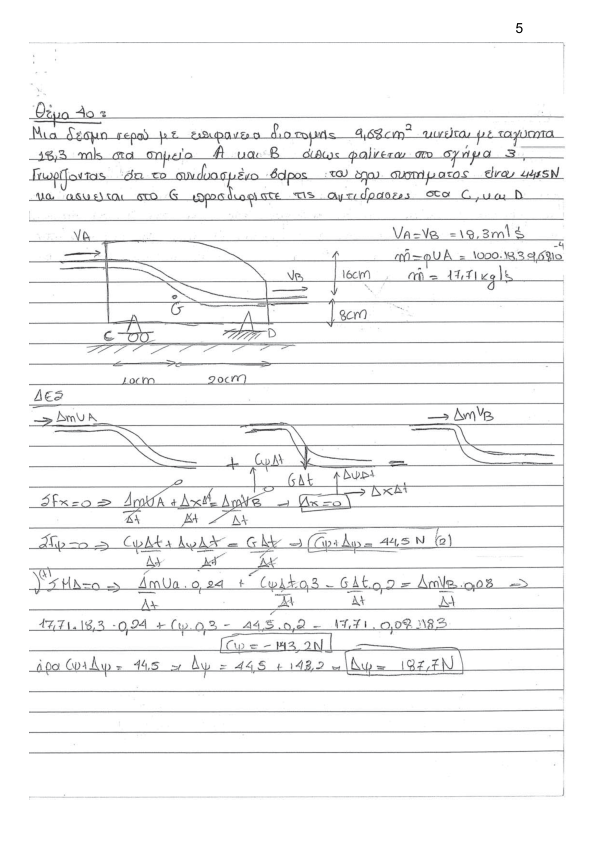 5
Θέμα 4ο:
Μια δέσμη νερού με επιφάνεια διατομής 9,68cm² κινείται με ταχύτητα
18,3 m/s στα σημεία Α και Β όπως φαίνεται στο σχήμα 3.
Γνωρίζοντας ότι το συνδυασμένο βάρος του όλου συστήματος είναι 44,5N
και ασκείται στο G προσδιορίστε τις αντιδράσεις στα C, και D
VA
VA=VB = 18,3m/s
ṁ=ρUA = 1000.18,3 9,68 10⁻⁴
VB
16cm
ṁ = 17,71 kg/s
G
8cm
C
D
10cm
20cm
ΔΕΣ
ΔmUA
ΔmVB
+
CψΔt
=
GΔt
ΔψΔt
ΔxΔt
ΣFx=0 => ΔmUA/Δt + ΔxΔt/Δt = ΔmVB/Δt → Δx=0
ΣFψ=0 => CψΔt/Δt + ΔψΔt/Δt = GΔt/Δt → Cψ+Δψ = 44,5 N (2)
(+) ΣMΔ=0 => ΔmUa/Δt . 0,24 + CψΔt/Δt . 0,3 - GΔt/Δt . 0,2 = ΔmVB/Δt . 0,08 =>
17,71.18,3 . 0,24 + Cψ . 0,3 - 44,5 . 0,2 - 17,71 . 0,08 . 183
Cψ = -143,2N
άρα Cψ+Δψ = 44,5 => Δψ = 44,5 + 143,2 = Δψ = 187,7N